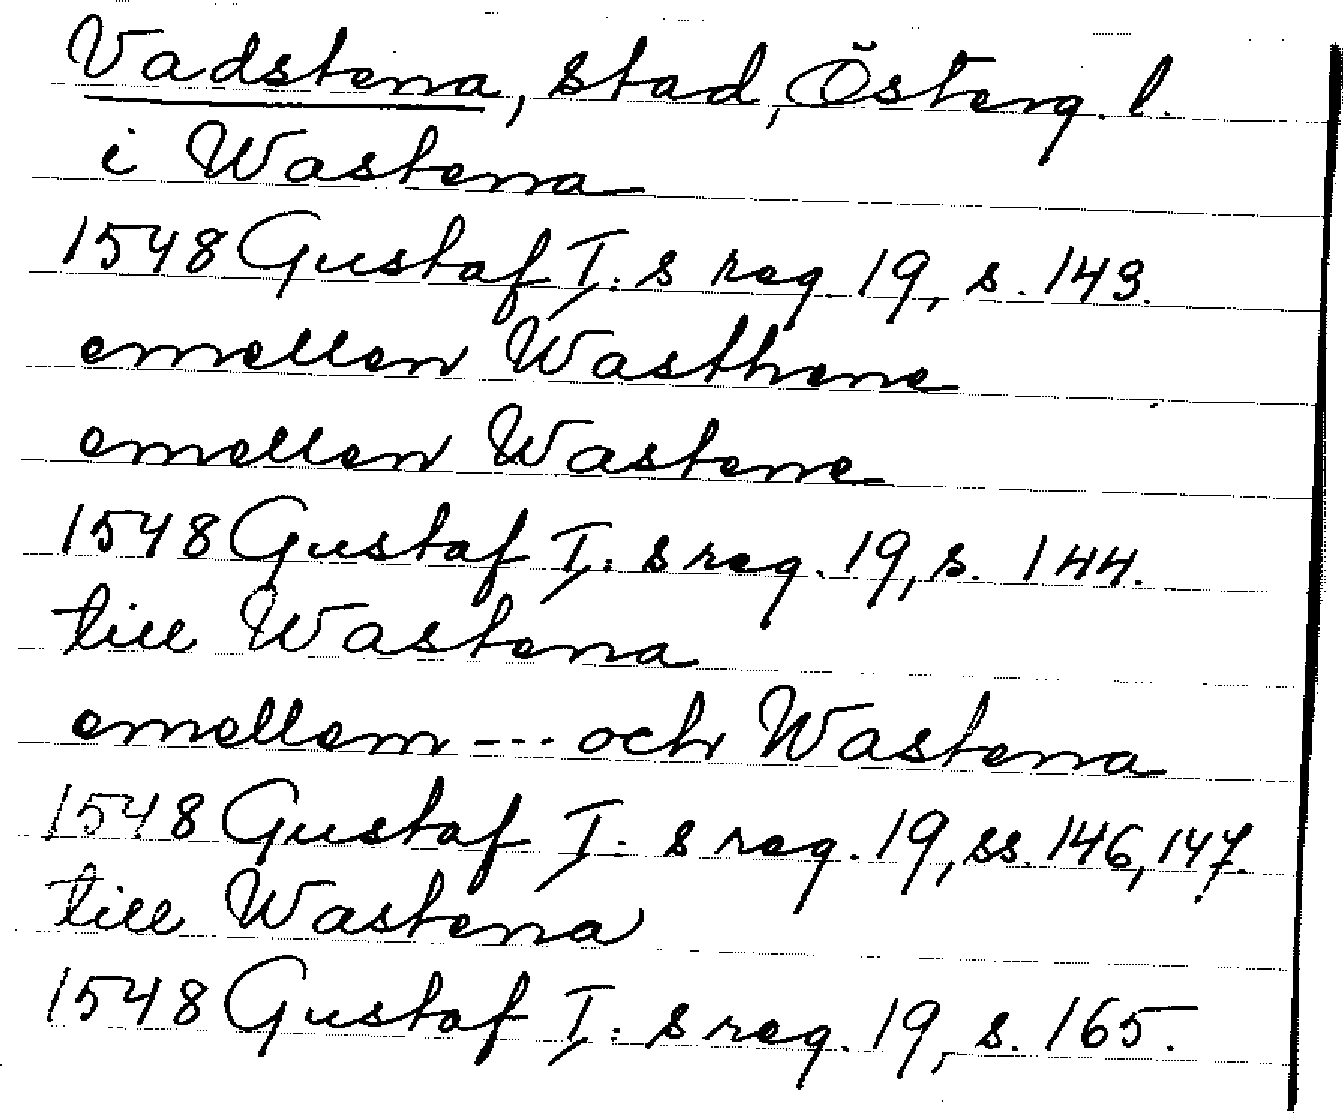 Vadstena, stad, Österg. l.
i Wastena
1548 Gustaf I:s reg. 19, s. 143.
emellen Wasthene
emellen Wastene
1548 Gustaf I:s reg. 19, s. 144.
till Wastena
emellem --- och Wastena
1548 Gustaf I:s reg. 19, ss. 146, 147.
till Wastena
1548 Gustaf I:s reg. 19, s. 165.